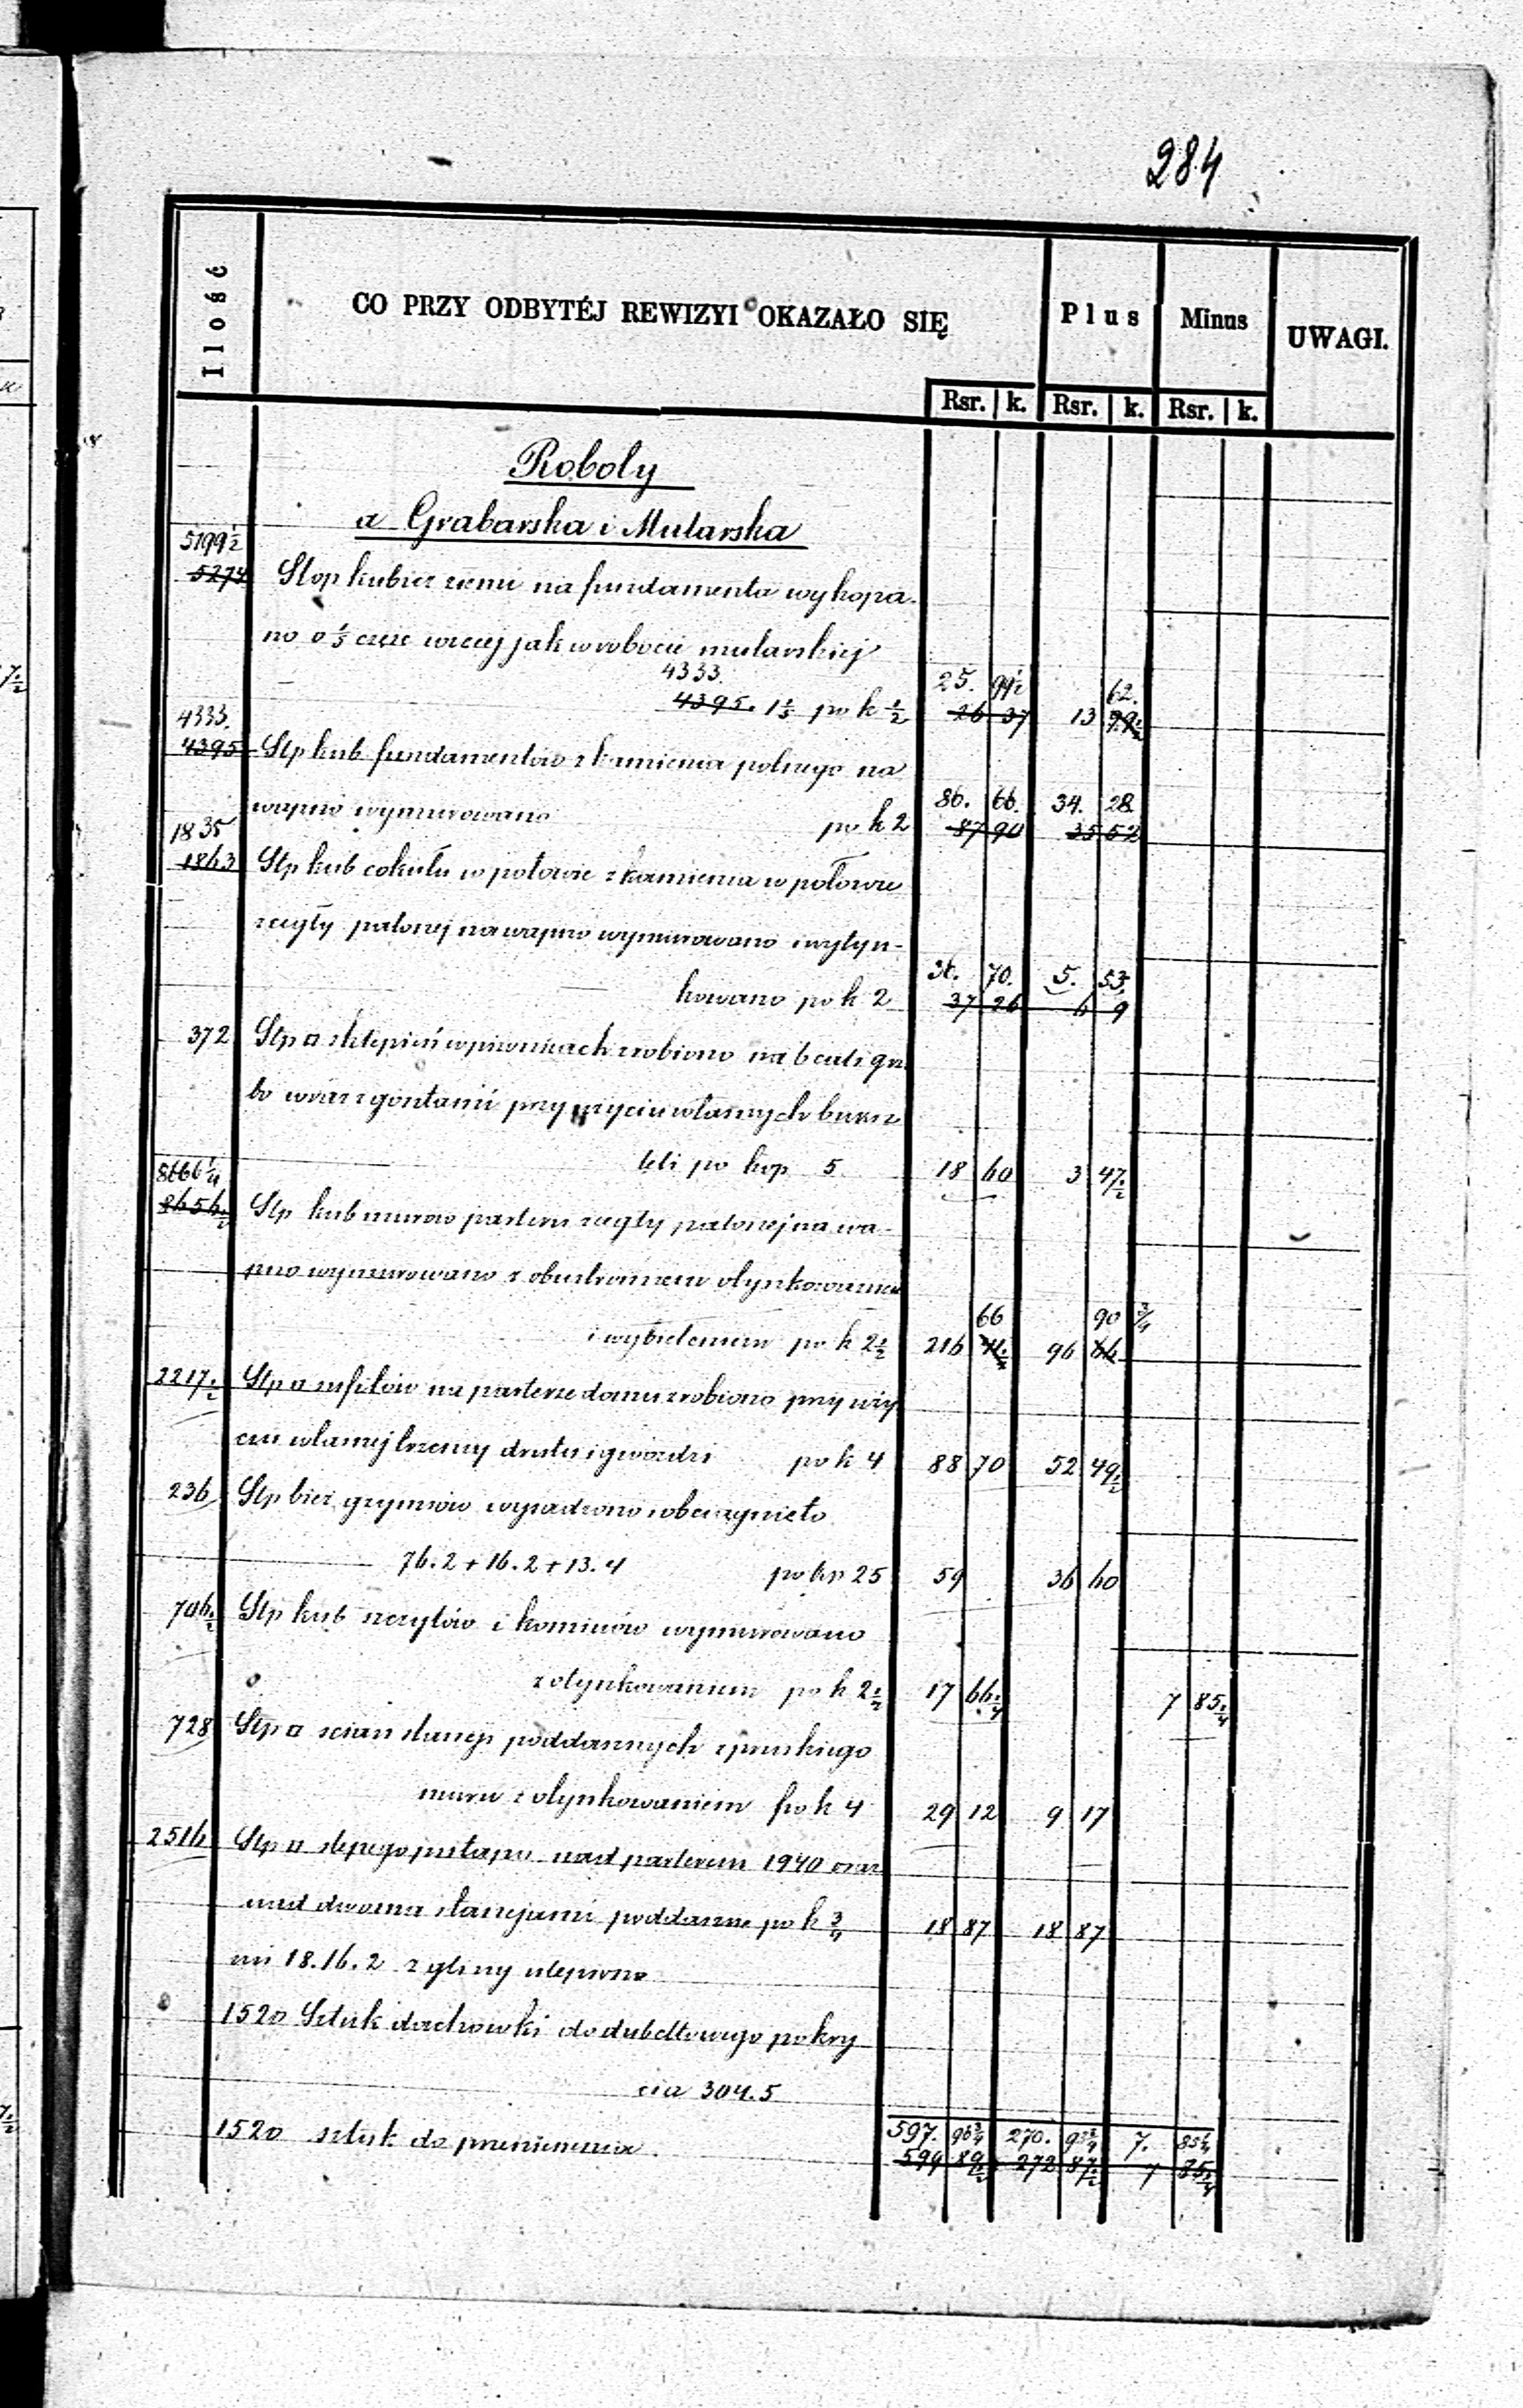 284
Ilość
CO PRZY ODBYTÉJ REWIZYI OKAZAŁO SIĘ
Plus
Minus
UWAGI.
Rsr. k. Rsr. k. Rsr. k.
Roboty
a Grabarska i Mularska
5199½
5274 Stop kubicz ziemi na fundamenta wykopa-
no o ⅕ część więcej jak w robocie mularskiej
4333. 25. 99½ 62.
4395. 1⅕ po k ½ 26 37 13 99½
4333.
4395 Stp kub fundamentów z kamienia polnego na
86. 66. 34. 28
wapno wymurowano po k 2 87 90 35 52
1835
1863 Stp kub cokułu w połowie z kamienia w połowie
z cegły palonej na wapno wymurowano i wytyn-
36. 70. 5. 53.
kowano po k 2 37 26 6 9
372 Stp □ sklepień w piwnicach zrobiono na 6 cali gru
bo wraz z gontami przy użyciu własnych buksz
teli po kop 5 18 60 3 47½
8666¼
8656½ Stp kub murów parteru z cegły palonej na wa-
pno wymurowano z obustronnem otynkowaniem
66 90 ¾
i wybieleniem po k 2½ 216 41½ 96 66
2217½ Stp □ sufitów na parterze domu zrobiono przy uży
ciu własnej trzciny drutu i gwoździ po k 4 88 70 52 49½
236 Stp bież gzymsów wysadzono i obciągnięto
76.2 + 16.2 + 13.4 po kp 25 59 36 60
706½ Stp kub szczytów i kominów wymurowano
z otynkowaniem po k 2½ 17 66¼ 7 85¼
728 Stp □ ścian stancji poddasznych z pruskiego
muru z otynkowaniem po k 4 29 12 9 17
2516 Stp □ ślepego pułapu nad parterem 1940 oraz
nad dwoma stancjami poddasze po k ¾ 18 87 18 87
mi 18.16.2 z gliny ulepiono
1520 Sztuk dachówki do dubeltowego pokry
cia 304.5
597. 96¾ 270. 93¾ 7. 85¼
1520 sztuk do przeniesienia. 599 89½ 272 87½ 7 85¼